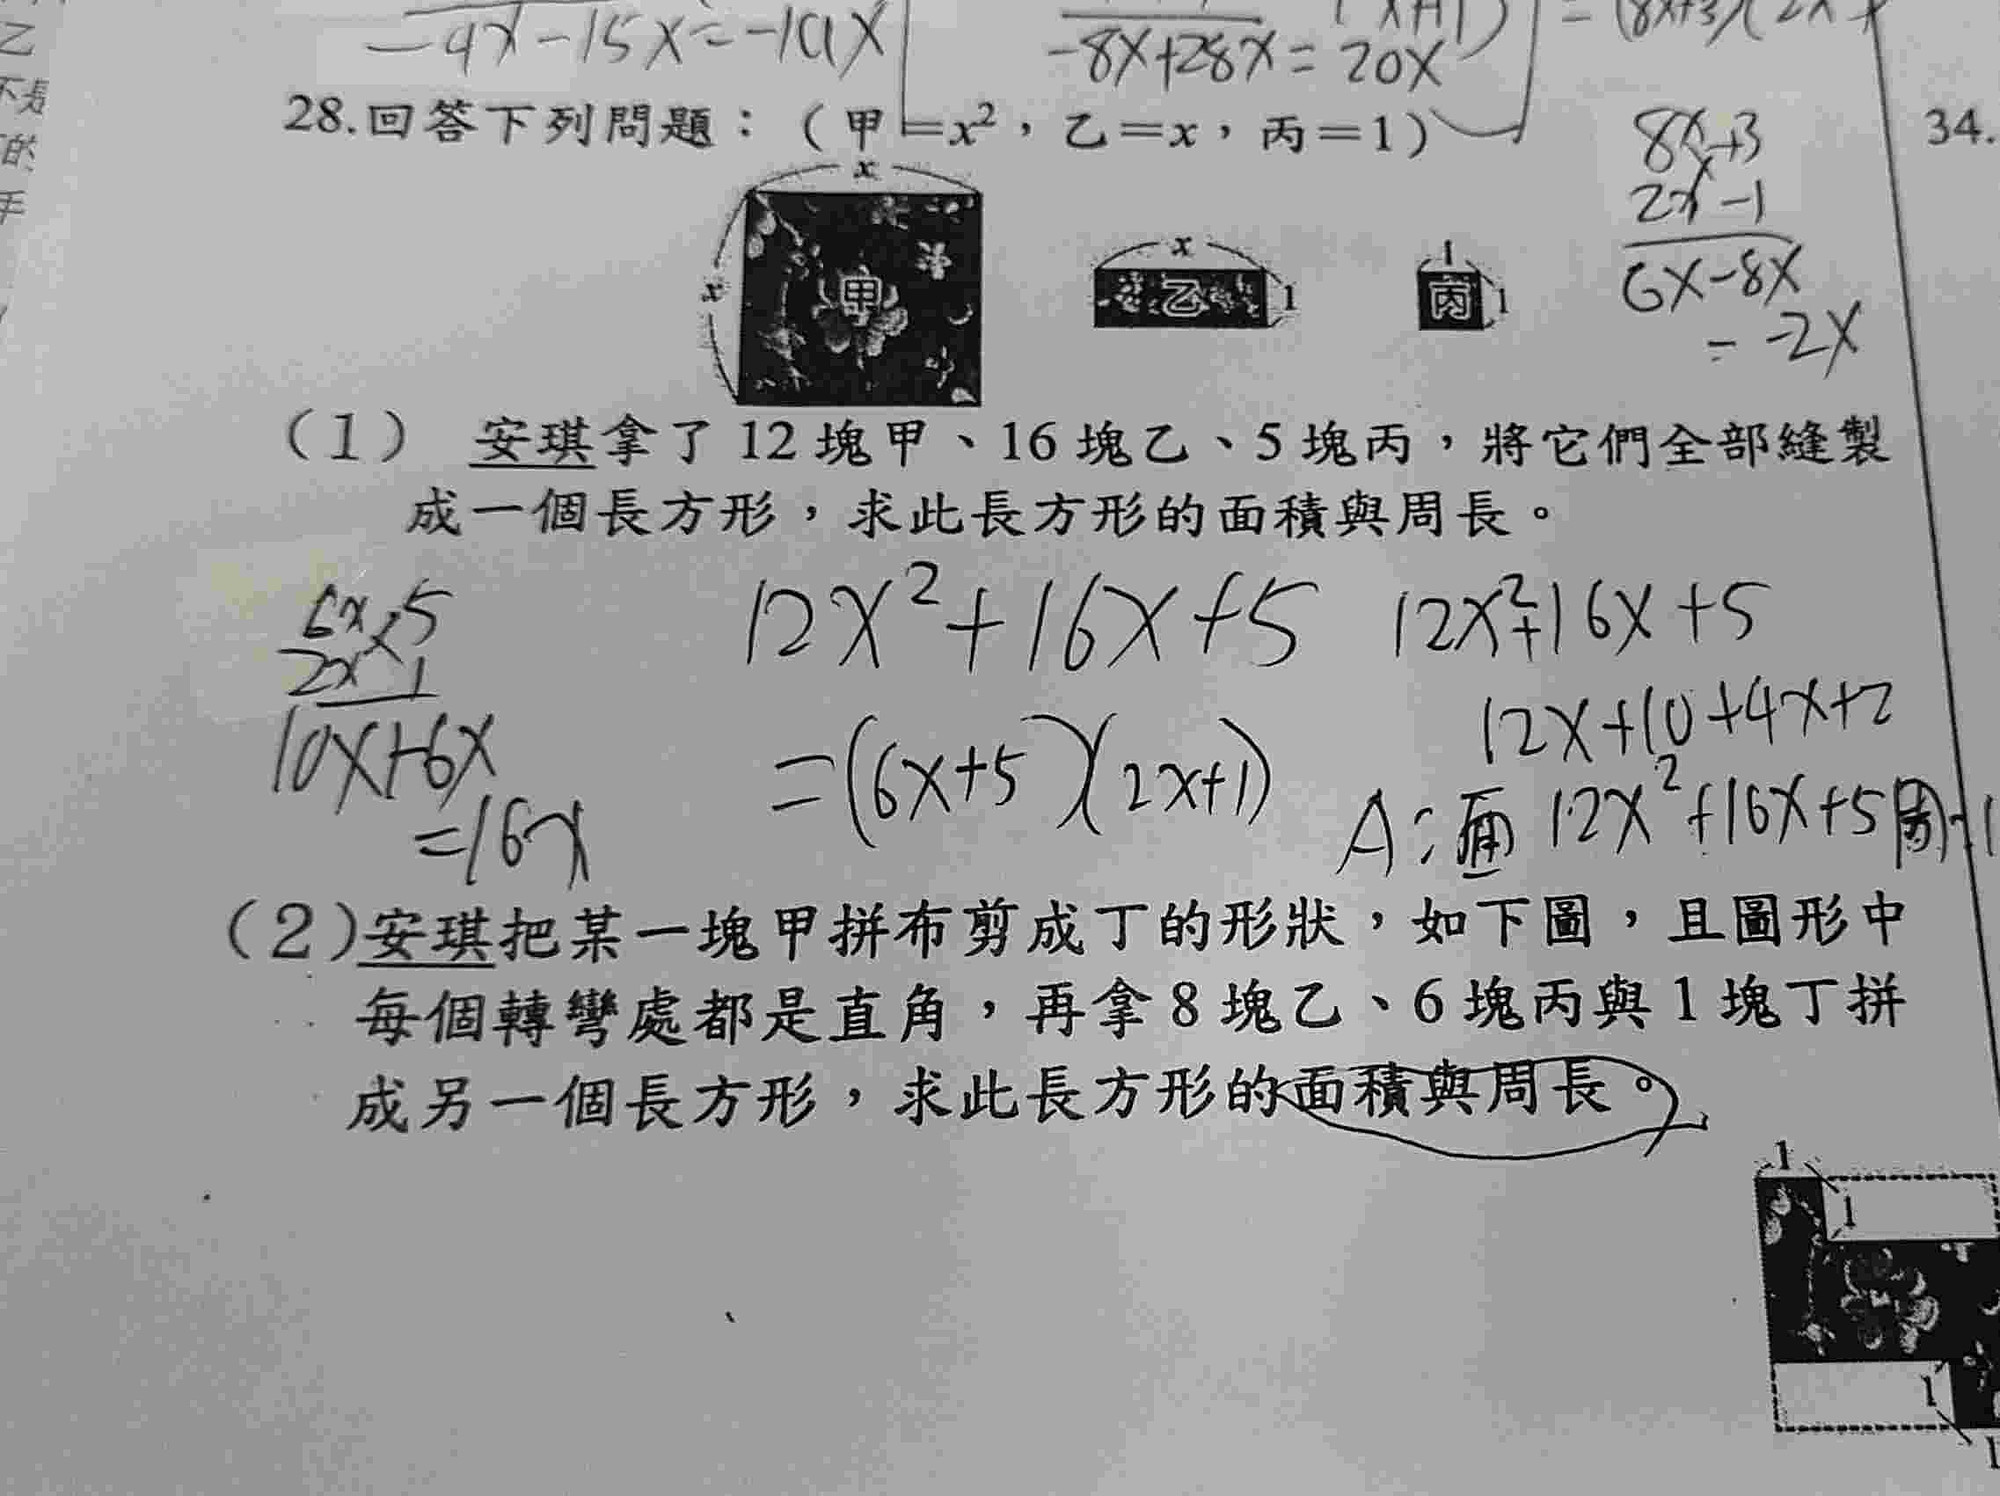 乙
不是
的
手
-9x-15x=-19x
-8x+28x=20x
28.回答下列問題：（甲=x²，乙=x，丙=1）
8x+3
2x-1
6x-8x
=-2x
34.
x
x
甲
x
乙
1
1
丙
1
（1） 安琪拿了12塊甲、16塊乙、5塊丙，將它們全部縫製
成一個長方形，求此長方形的面積與周長。
6x 5
2x 1
10x+6x
=16x
12x²+16x+5
=(6x+5)(2x+1)
12x²+16x+5
12x+10+4x+2
A:面 12x²+16x+5 周
（2）安琪把某一塊甲拼布剪成丁的形狀，如下圖，且圖形中
每個轉彎處都是直角，再拿8塊乙、6塊丙與1塊丁拼
成另一個長方形，求此長方形的面積與周長。
1
1
1
1